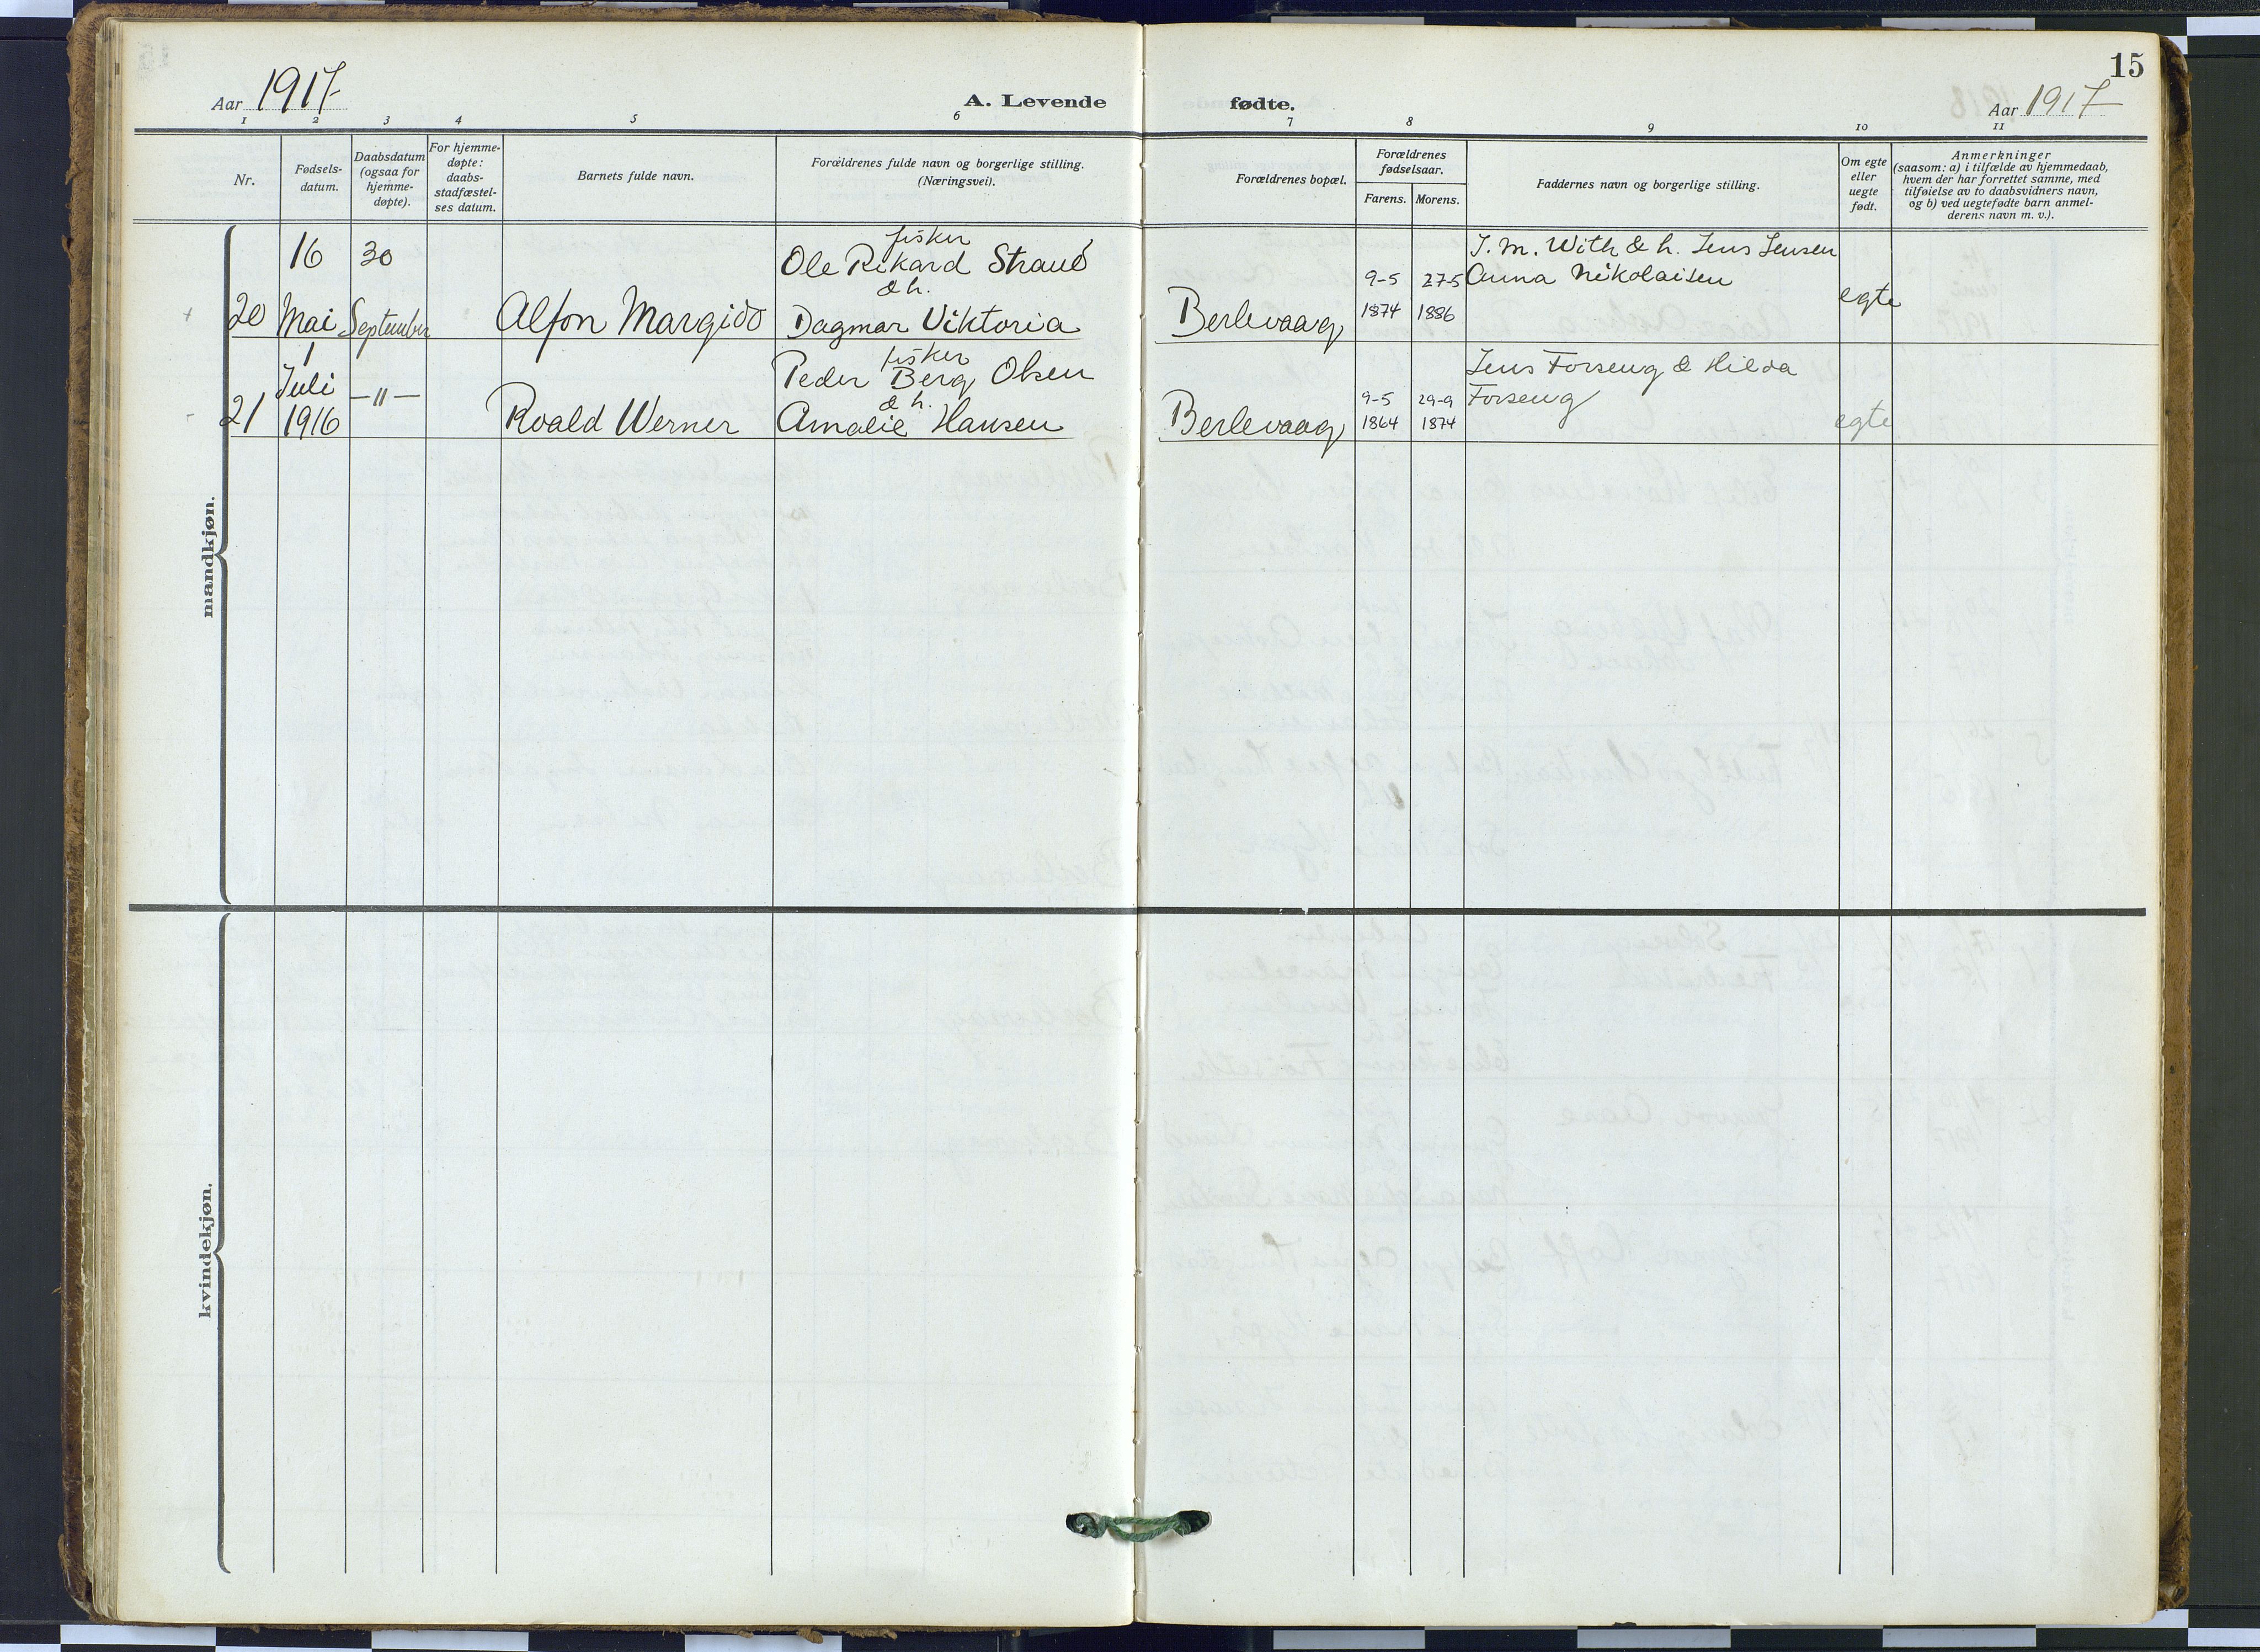 15
Aar 1917
A. Levende fødte.
Aar 1917
1 2 3 4 5 6 7 8 9 10 11
Nr.
Fødsels-
datum.
Daabsdatum
(ogsaa for
hjemme-
døpte).
For hjemme-
døpte:
daabs-
stadfæstel-
ses datum.
Barnets fulde navn.
Forældrenes fulde navn og borgerlige stilling.
(Næringsvei).
Forældrenes bopæl.
Forældrenes
fødselsaar.
Farens. Morens.
Faddernes navn og borgerlige stilling.
Om egte
eller
uegte
født.
Anmerkninger
(saasom: a) i tilfælde av hjemmedaab,
hvem der har forrettet samme, med
tilføielse av to daabsvidners navn,
og b) ved uegtefødte barn anmel-
derens navn m. v.).
mandkjøn.
20
16
Mai
30
September
Alfon Margido
fisker
Ole Rikard Strand
& h.
Dagmar Viktoria
Berlevaag
9-5
1874
27-5
1886
J. M. With & h. Jens Jensen
Anna Nikolaisen
egte
21
1
Juli
1916
—"—
Roald Werner
fisker
Peder Berg Olsen
& h.
Amalie Hansen
Berlevaag
9-5
1864
29-9
1874
Jens Forseng & Hilda
Forseng
egte
kvindekjøn.